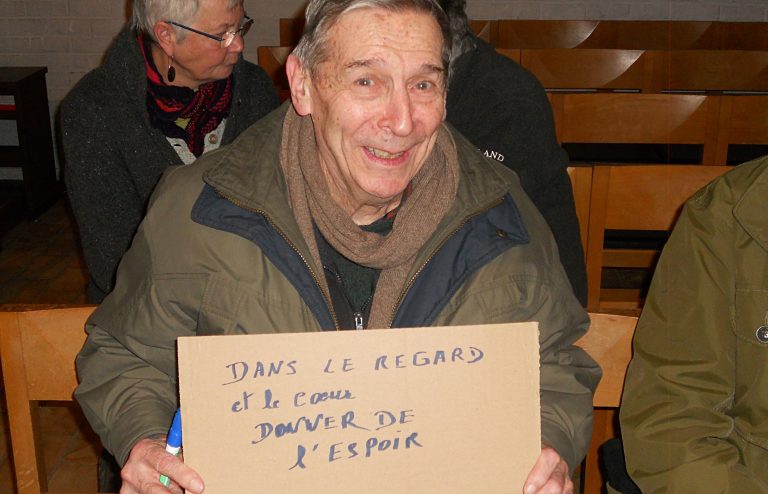 AND
DANS LE REGARD
et le cœur
DONNER DE
l'ESPOIR